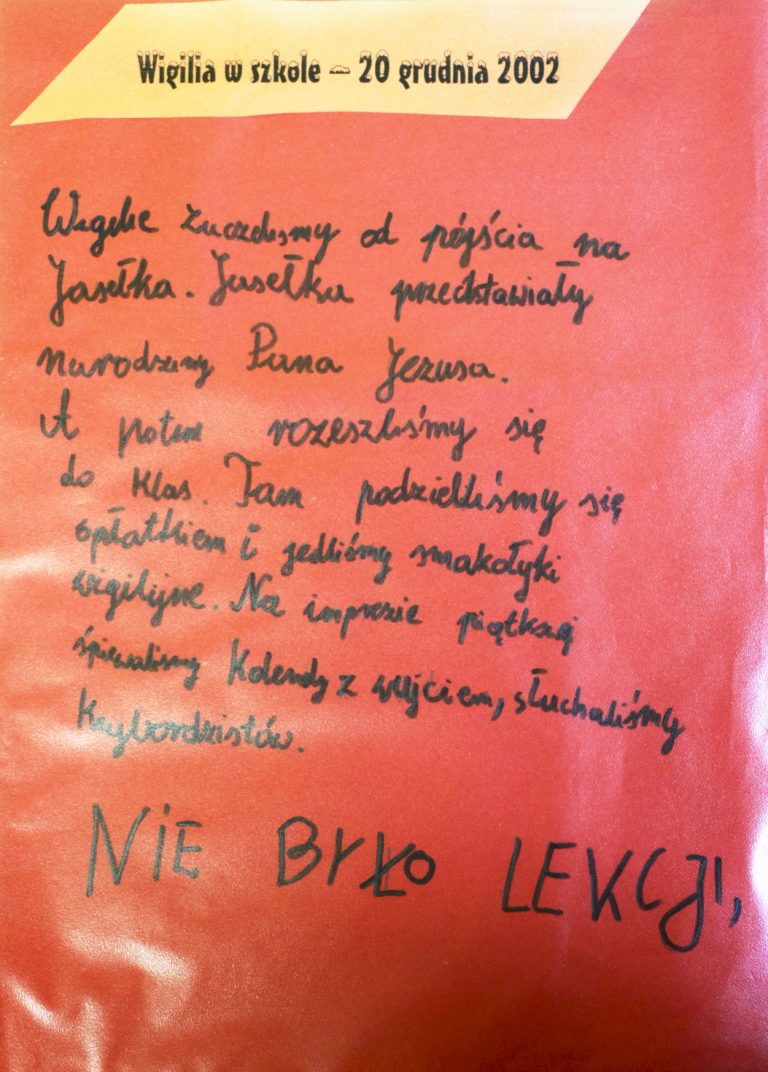 Wigilia w szkole – 20 grudnia 2002
Wigilie zaczeliśmy od pójścia na
Jasełka. Jasełka przedstawiały
narodziny Pana Jezusa.
A potem rozeszliśmy się
do klas. Tam podzieliliśmy się
opłatkiem i jedliśmy smakołyki
wigilijne. Na imprezie piątkzej
śpiewalismy Kolendy z wujciem, słuchaliśmy
Keybordzistów.
NIE BYŁO LEKCJI,